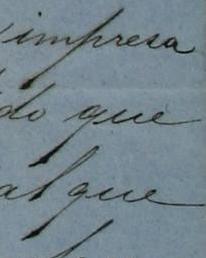 impresa
do que
al que